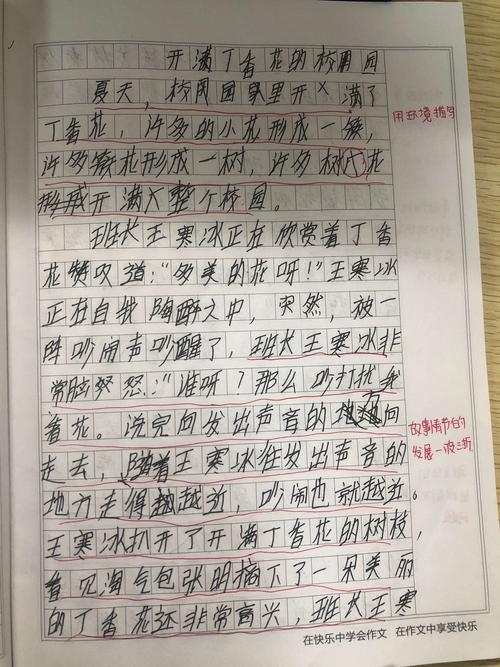 开满丁香花的校周园
夏天，校周园里开满了
丁香花，许多的小花形成一簇，
许多簇花形成一树，许多树花
形成开满整个校园。
班长王寒冰正在欣赏着丁香
花赞叹道："多美的花呀！"王寒冰
正在自我陶醉之中，突然，被一
阵吵闹声吵醒了，班长王寒冰非
常恼怒："谁呀？那么吵打扰我
看花。说完向发出声音的地方向
走去，随着王寒冰往发出声音的
地方走得越越近，吵闹也就越近。
王寒冰扒开了开满丁香花的树枝，
看见淘气包张明摘下了一朵美丽
的丁香花还非常高兴，班长王寒
用环境描写
故事情节的
发展一波三折
在快乐中学会作文 在作文中享受快乐